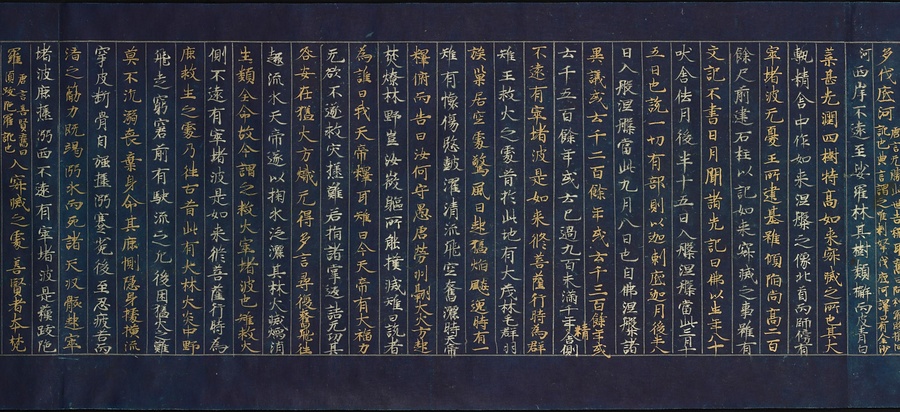 多伐底河
河西岸不遠至娑羅林其樹類槲而皮青白
葉甚光潤四樹特高如來寂滅之所也其大
甎精舍中作如來涅槃之像北首而臥傍有
窣堵波无憂王所建基雖傾陷尚高二百
餘尺前建石柱以記如來寂滅之事雖有
文記不書日月聞諸先記曰佛以生年八十
吠舍佉月後半十五日入般涅槃當此三月十
五日也說一切有部則以迦剌底迦月後半八
日入般涅槃當此九月八日也自佛涅槃諸
異議或云千二百餘年或云千三百餘年或
云千五百餘年或云已過九百未滿千年精舍側
不遠有窣堵波是如來修菩薩行時為群
雉王救火之處昔於此地有大茂林毛群羽
族巢居穴處驚風四起猛焰飈逸時有一
雉有懷傷愍鼓濯清流飛空奮灑時天帝
釋俯而告曰汝何守愚虛勞羽翮大火方起
焚燎林野豈汝微軀所能撲滅雉曰說者
為誰曰我天帝釋耳雉曰今天帝有大福力
无欲不遂救灾拯難若指諸掌反詰无功其
咎安在猛火方熾无得多言尋復奮飛往
趣流水天帝遂以掬水泛灑其林火滅烟消
生類全命故今謂之救火窣堵波也雉救火
側不遠有窣堵波是如來修菩薩行時為
鹿救生之處乃往古昔此有大林火炎中野
飛走窮窘前有駃流之阨後困猛火之難
莫不沉溺喪棄身命其鹿惻隱身據橫流
穿皮斷骨自強拯溺蹇兔後至忍疲苦而
濟之筋力既竭溺水而死諸天収骸起窣
堵波鹿拯溺西不遠有窣堵波是蘇跋陀
羅唐言善賢舊曰須跋陀羅訛也入寂滅之處善賢者本梵